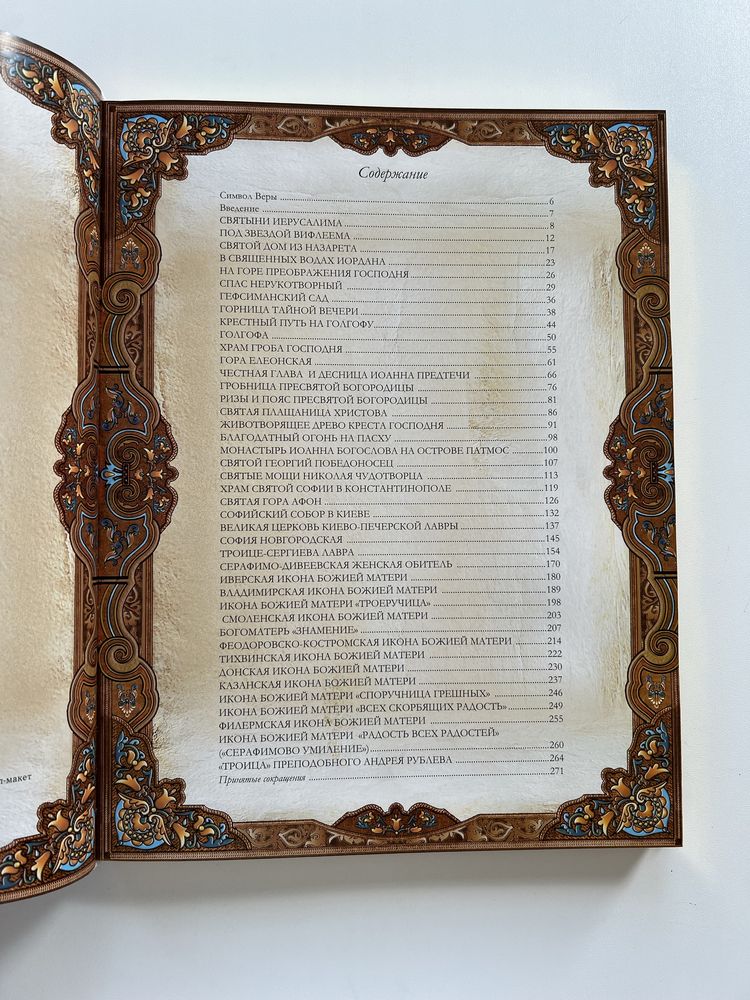 Содержание
Символ Веры ... 6
Введение ... 7
СВЯТЫНИ ИЕРУСАЛИМА ... 8
ПОД ЗВЕЗДОЙ ВИФЛЕЕМА ... 12
СВЯТОЙ ДОМ ИЗ НАЗАРЕТА ... 17
В СВЯЩЕННЫХ ВОДАХ ИОРДАНА ... 23
НА ГОРЕ ПРЕОБРАЖЕНИЯ ГОСПОДНЯ ... 26
СПАС НЕРУКОТВОРНЫЙ ... 29
ГЕФСИМАНСКИЙ САД ... 36
ГОРНИЦА ТАЙНОЙ ВЕЧЕРИ ... 38
КРЕСТНЫЙ ПУТЬ НА ГОЛГОФУ ... 44
ГОЛГОФА ... 50
ХРАМ ГРОБА ГОСПОДНЯ ... 55
ГОРА ЕЛЕОНСКАЯ ... 61
ЧЕСТНАЯ ГЛАВА И ДЕСНИЦА ИОАННА ПРЕДТЕЧИ ... 66
ГРОБНИЦА ПРЕСВЯТОЙ БОГОРОДИЦЫ ... 76
РИЗЫ И ПОЯС ПРЕСВЯТОЙ БОГОРОДИЦЫ ... 81
СВЯТАЯ ПЛАЩАНИЦА ХРИСТОВА ... 86
ЖИВОТВОРЯЩЕЕ ДРЕВО КРЕСТА ГОСПОДНЯ ... 91
БЛАГОДАТНЫЙ ОГОНЬ НА ПАСХУ ... 98
МОНАСТЫРЬ ИОАННА БОГОСЛОВА НА ОСТРОВЕ ПАТМОС ... 100
СВЯТОЙ ГЕОРГИЙ ПОБЕДОНОСЕЦ ... 107
СВЯТЫЕ МОЩИ НИКОЛАЯ ЧУДОТВОРЦА ... 113
ХРАМ СВЯТОЙ СОФИИ В КОНСТАНТИНОПОЛЕ ... 119
СВЯТАЯ ГОРА АФОН ... 126
СОФИЙСКИЙ СОБОР В КИЕВЕ ... 132
ВЕЛИКАЯ ЦЕРКОВЬ КИЕВО-ПЕЧЕРСКОЙ ЛАВРЫ ... 137
СОФИЯ НОВГОРОДСКАЯ ... 145
ТРОИЦЕ-СЕРГИЕВА ЛАВРА ... 154
СЕРАФИМО-ДИВЕЕВСКАЯ ЖЕНСКАЯ ОБИТЕЛЬ ... 170
ИВЕРСКАЯ ИКОНА БОЖИЕЙ МАТЕРИ ... 180
ВЛАДИМИРСКАЯ ИКОНА БОЖИЕЙ МАТЕРИ ... 189
ИКОНА БОЖИЕЙ МАТЕРИ «ТРОЕРУЧИЦА» ... 198
СМОЛЕНСКАЯ ИКОНА БОЖИЕЙ МАТЕРИ ... 203
БОГОМАТЕРЬ «ЗНАМЕНИЕ» ... 207
ФЕОДОРОВСКО-КОСТРОМСКАЯ ИКОНА БОЖИЕЙ МАТЕРИ ... 214
ТИХВИНСКАЯ ИКОНА БОЖИЕЙ МАТЕРИ ... 222
ДОНСКАЯ ИКОНА БОЖИЕЙ МАТЕРИ ... 230
КАЗАНСКАЯ ИКОНА БОЖИЕЙ МАТЕРИ ... 237
ИКОНА БОЖИЕЙ МАТЕРИ «СПОРУЧНИЦА ГРЕШНЫХ» ... 246
ИКОНА БОЖИЕЙ МАТЕРИ «ВСЕХ СКОРБЯЩИХ РАДОСТЬ» ... 249
ФИЛЕРМСКАЯ ИКОНА БОЖИЕЙ МАТЕРИ ... 255
ИКОНА БОЖИЕЙ МАТЕРИ «РАДОСТЬ ВСЕХ РАДОСТЕЙ»
(«СЕРАФИМОВО УМИЛЕНИЕ») ... 260
«ТРОИЦА» ПРЕПОДОБНОГО АНДРЕЯ РУБЛЕВА ... 264
Принятые сокращения ... 271
л-макет